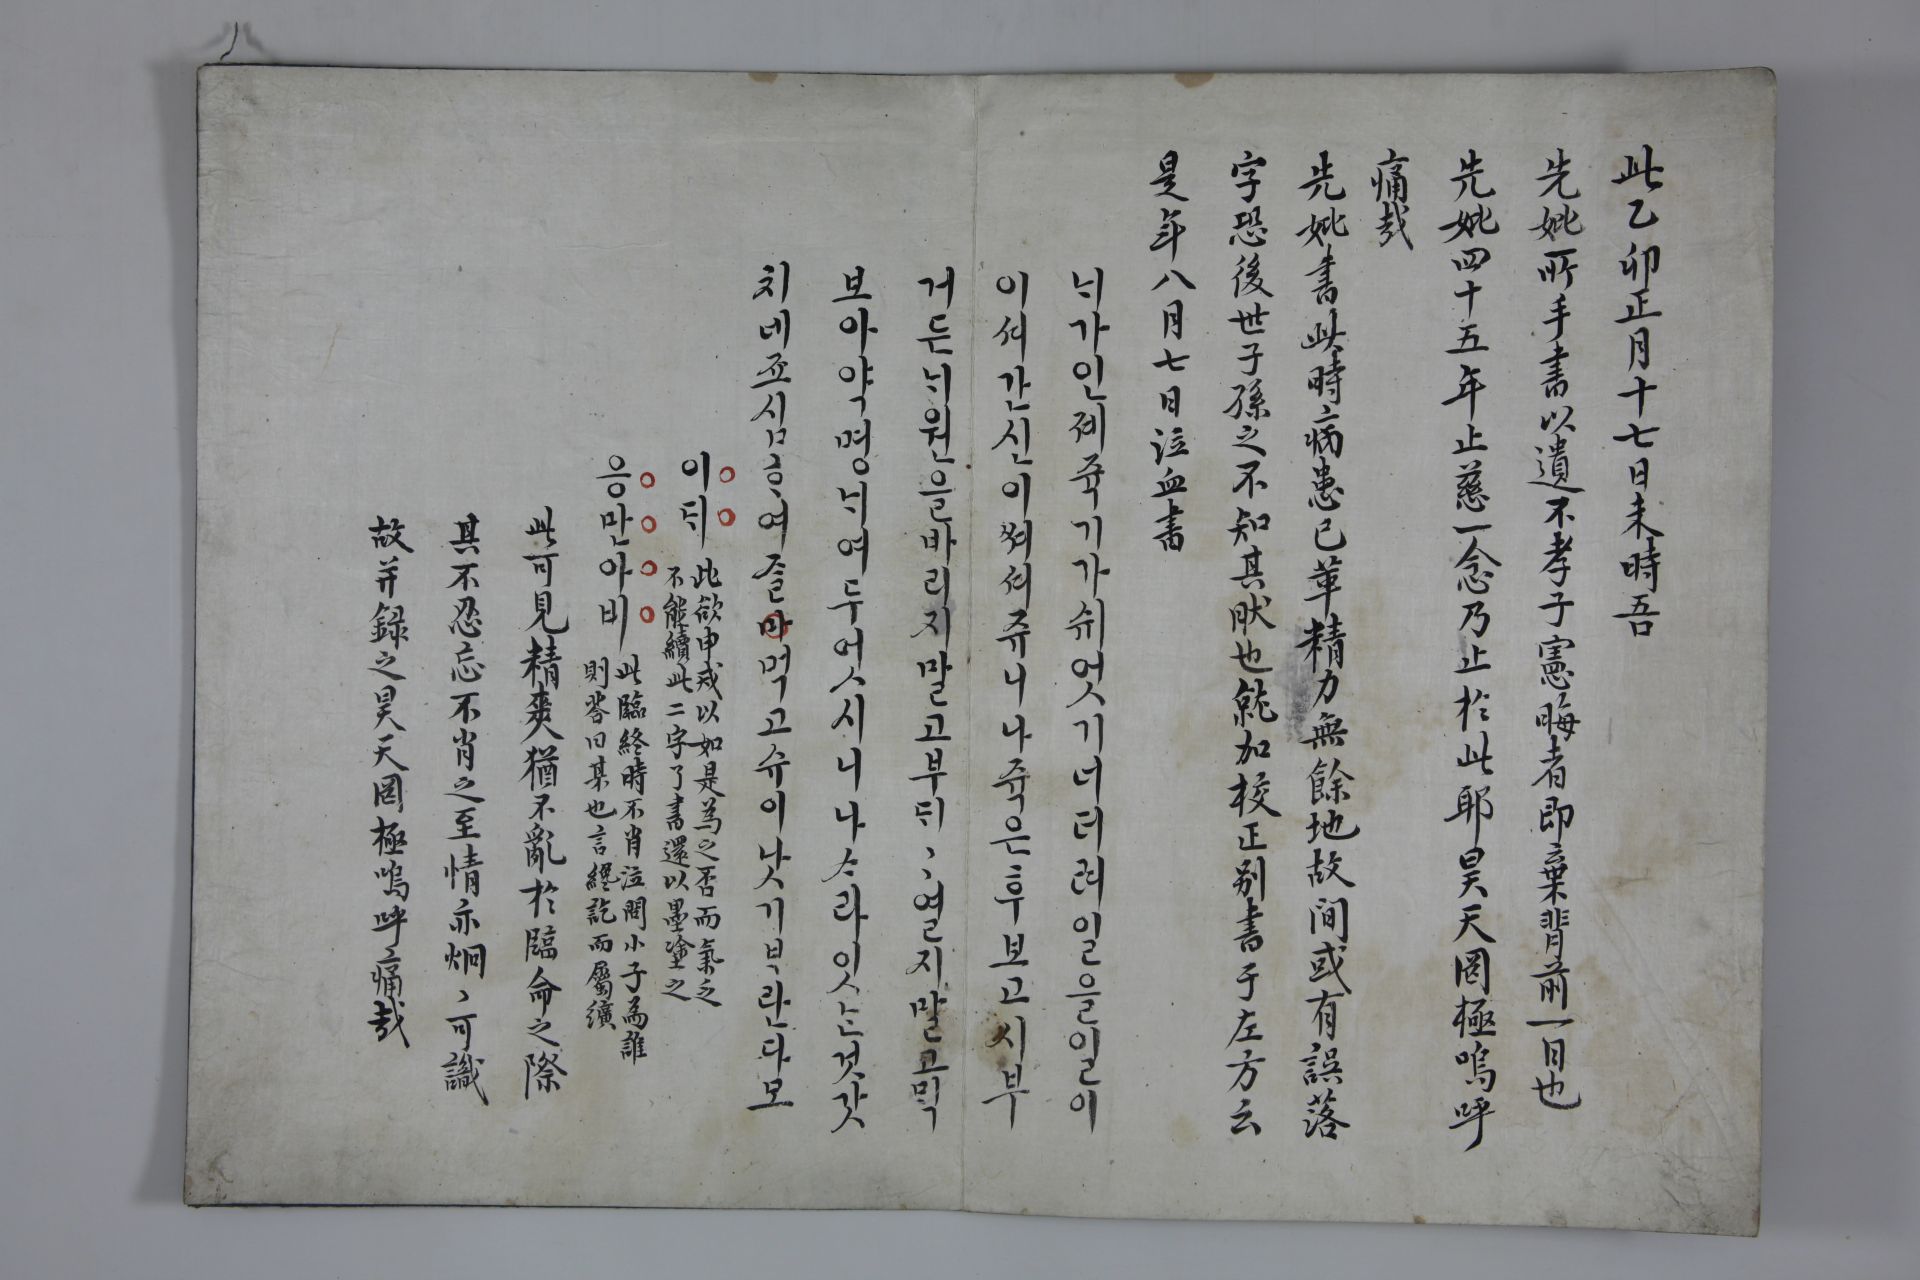 此乙卯正月十七日未時吾
先妣所手書以遺不孝子憲晦者即棄背前一日也
先妣四十五年止慈一念乃止於此耶昊天罔極嗚呼
痛哉
先妣書此時病患已革精力無餘地故間或有誤落
字恐後世子孫之不知其然也就加校正別書于左方云
是年八月七日泣血書
늬가인졔쥭기가쉬엇기너더려일을일이
이셔간신이쎠셔쥬니나쥭은후보고시부
거든늬원을바리지말고부듸〻열지말고믹
보아약명늬여두엇시니나ᄉᆞ라잇ᄂᆞᆫ것갓
치네죠심ᄒᆞ여즐마먹고슈이낫기ᄇᆞ란다모
이듸 此欲申戒以如是為之否而氣乏
不能續此二字了書還以墨塗之
응만아비 此臨終時不肖泣問小子為誰
則答曰某也言纔訖而屬纊
此可見精爽猶不亂於臨命之際
其不忍忘不肖之至情亦炯〻可識
故并録之昊天罔極嗚呼痛哉